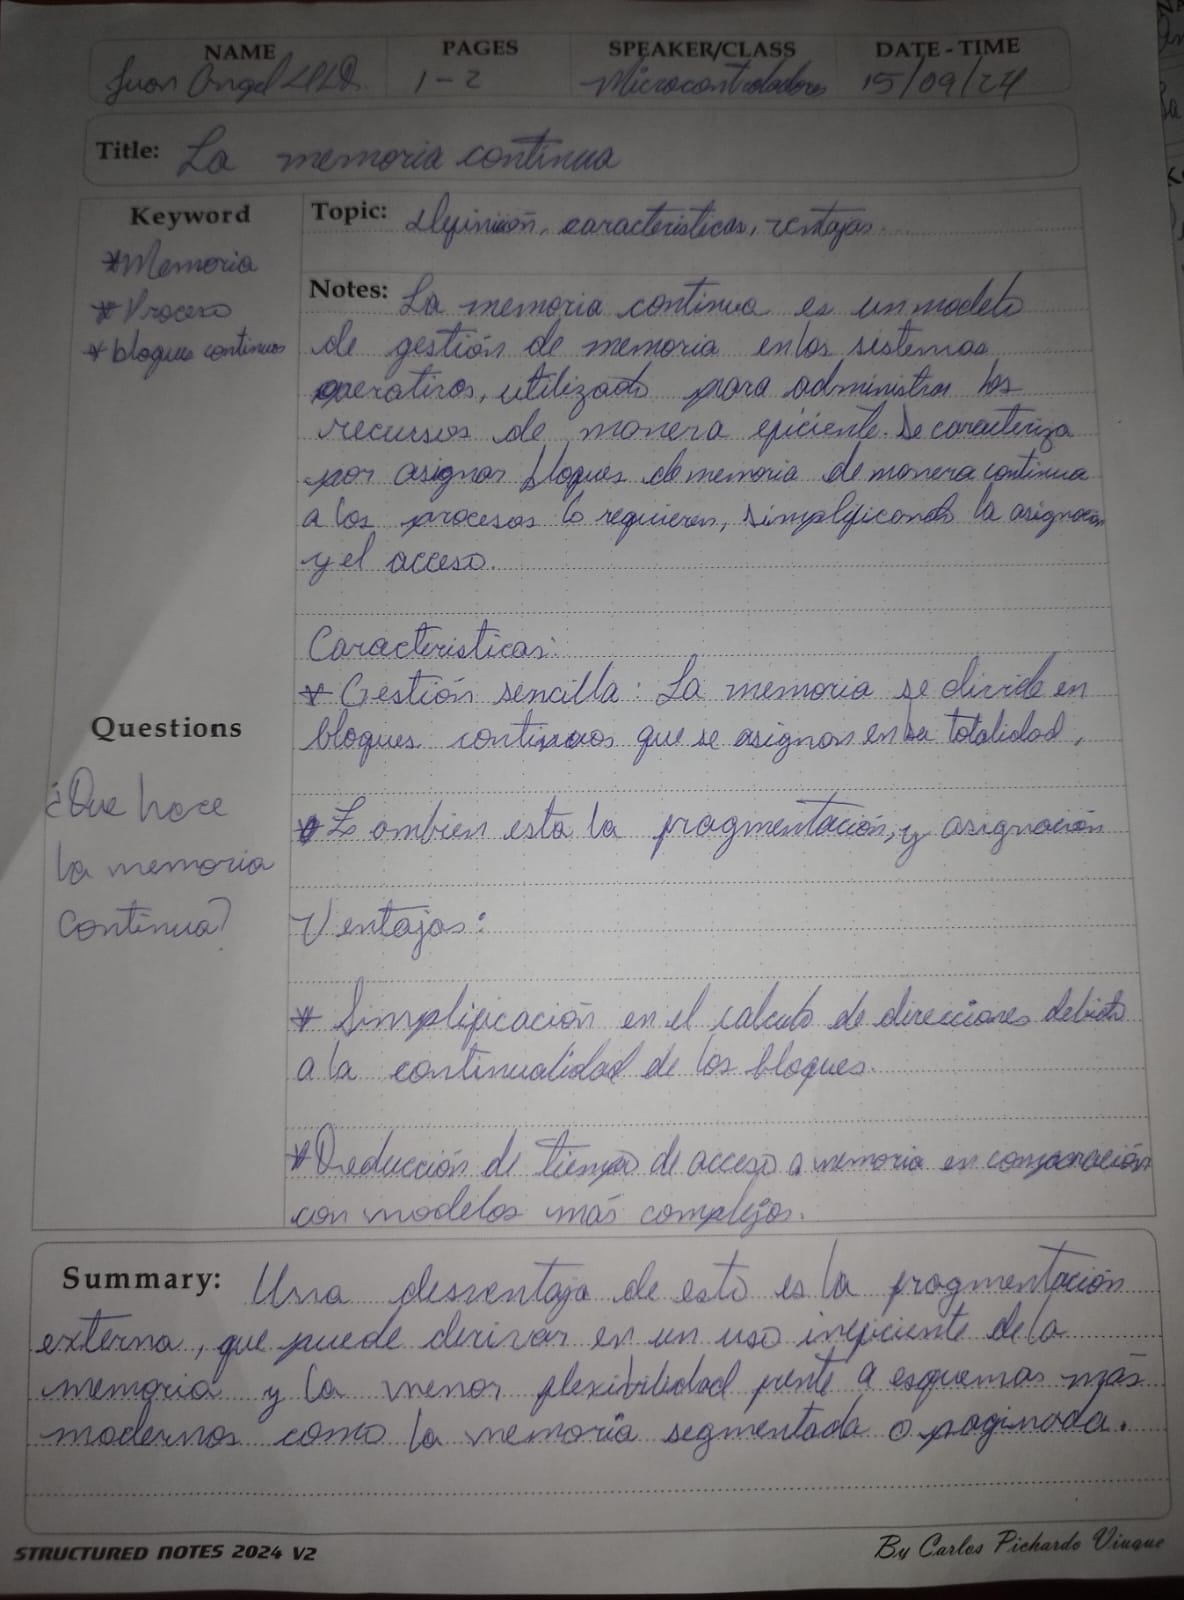 NAME PAGES SPEAKER/CLASS DATE-TIME
Juan Angel 1-2 Microcontroladores 15/09/24
Title: La memoria continua
Keyword
*Memoria
*Proceso
*bloques continuos
Topic: Definición, caracteristicas, ventajas.
Notes: La memoria continua es un modelo
de gestión de memoria en los sistemas
operativos, utilizado para administrar los
recursos de manera eficiente. Se caracteriza
por asignar bloques de memoria de manera continua
a los procesos lo requieren, simplificando la asignación
y el acceso.
Caracteristicas:
* Gestión sencilla: La memoria se divide en
bloques continuos que se asignan en su totalidad.
* Tambien esta la fragmentación, y asignación
Ventajas:
* Simplificación en el calculo de direcciones debido
a la continualidad de los bloques.
*Reducción de tiempo de acceso a memoria en comparación
con modelos más complejos.
Questions
¿Que hace
la memoria
continua?
Summary: Una desventaja de esto es la fragmentación
externa, que puede derivar en un uso ineficiente de la
memoria y la menor flexibilidad frente a esquemas más
modernos como la memoria segmentada o paginada.
STRUCTURED NOTES 2024 V2
By Carlos Pichardo Viuque